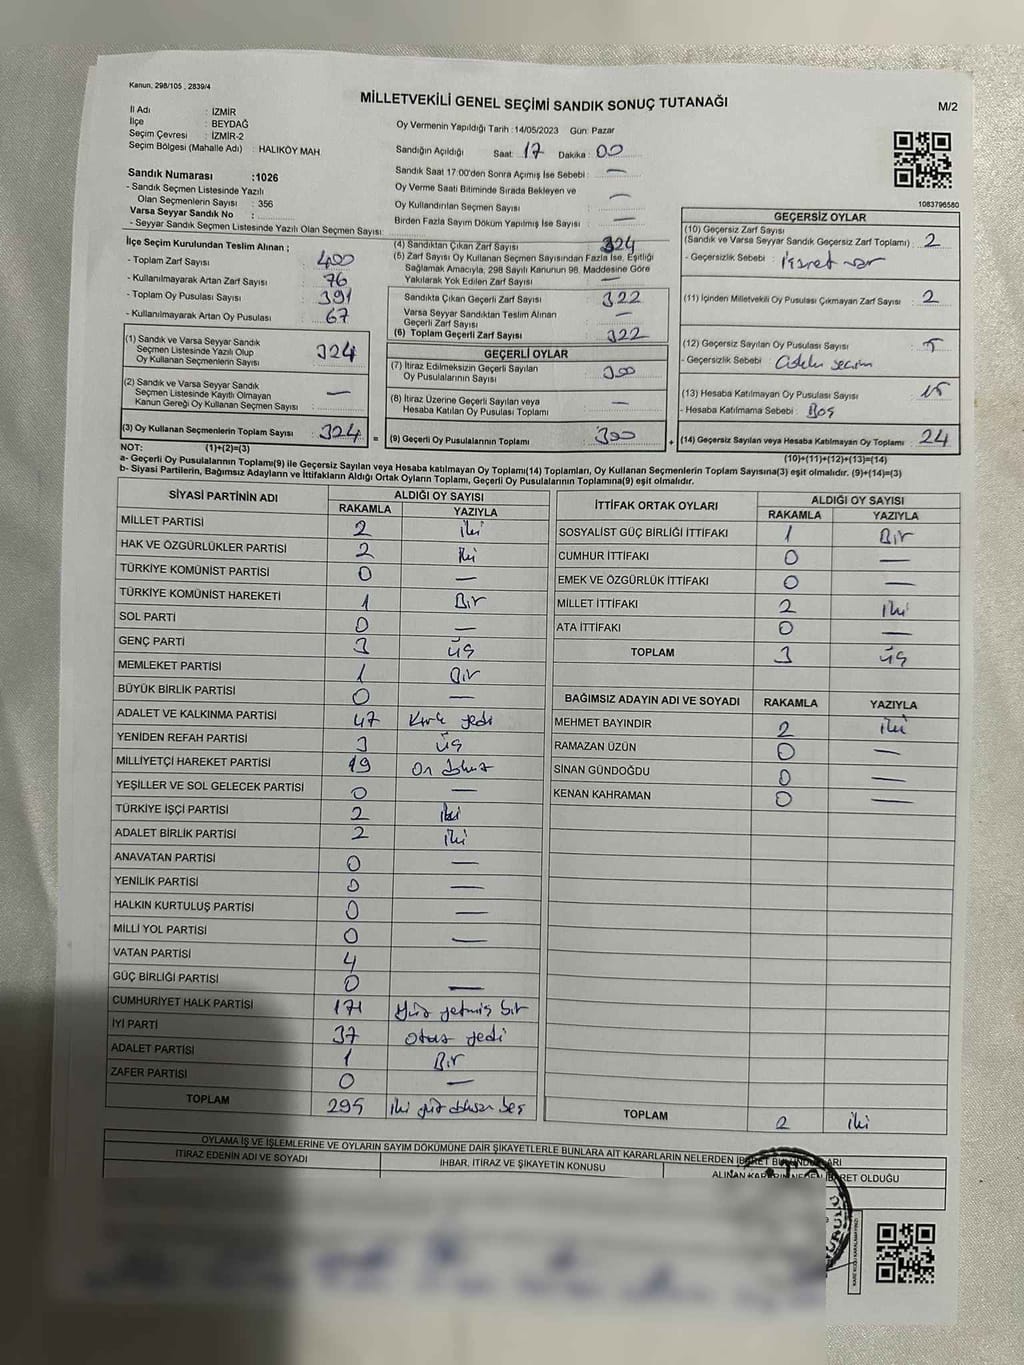 Kanun, 298/105 , 2839/4
MİLLETVEKİLİ GENEL SEÇİMİ SANDIK SONUÇ TUTANAĞI
M/2
İl Adı : İZMİR
İlçe : BEYDAĞ
Seçim Çevresi : İZMİR-2
Seçim Bölgesi (Mahalle Adı) : HALIKÖY MAH.
Sandık Numarası :1026
- Sandık Seçmen Listesinde Yazılı
Olan Seçmenlerin Sayısı : 356
Varsa Seyyar Sandık No :
- Seyyar Sandık Seçmen Listesinde Yazılı Olan Seçmen Sayısı:
Oy Vermenin Yapıldığı Tarih :14/05/2023 Gün: Pazar
Sandığın Açıldığı Saat: 17 Dakika : 00
Sandık Saat 17:00'den Sonra Açımış İse Sebebi : —
Oy Verme Saati Bitiminde Sırada Bekleyen ve
Oy Kullandırılan Seçmen Sayısı —
Birden Fazla Sayım Döküm Yapılmış İse Sayısı —
1083796580
İlçe Seçim Kurulundan Teslim Alınan ;
- Toplam Zarf Sayısı : 400
- Kullanılmayarak Artan Zarf Sayısı : 76
- Toplam Oy Pusulası Sayısı : 391
- Kullanılmayarak Artan Oy Pusulası : 67
(1) Sandık ve Varsa Seyyar Sandık
Seçmen Listesinde Yazılı Olup
Oy Kullanan Seçmenlerin Sayısı : 324
(2) Sandık ve Varsa Seyyar Sandık
Seçmen Listesinde Kayıtlı Olmayan
Kanun Gereği Oy Kullanan Seçmen Sayısı : —
(3) Oy Kullanan Seçmenlerin Toplam Sayısı : 324 =
(4) Sandıktan Çıkan Zarf Sayısı 324
(5) Zarf Sayısı Oy Kullanan Seçmen Sayısından Fazla İse, Eşitliği
Sağlamak Amacıyla, 298 Sayılı Kanunun 98. Maddesine Göre
Yakılarak Yok Edilen Zarf Sayısı : —
Sandıkta Çıkan Geçerli Zarf Sayısı : 322
Varsa Seyyar Sandıktan Teslim Alınan
Geçerli Zarf Sayısı : —
(6) Toplam Geçerli Zarf Sayısı : 322
GEÇERLİ OYLAR
(7) İtiraz Edilmeksizin Geçerli Sayılan
Oy Pusulalarının Sayısı : 300
(8) İtiraz Üzerine Geçerli Sayılan veya
Hesaba Katılan Oy Pusulası Toplamı : —
(9) Geçerli Oy Pusulalarının Toplamı : 300 +
GEÇERSİZ OYLAR
(10) Geçersiz Zarf Sayısı
(Sandık ve Varsa Seyyar Sandık Geçersiz Zarf Toplamı) : 2
- Geçersizlik Sebebi : işaret var
(11) İçinden Milletvekili Oy Pusulası Çıkmayan Zarf Sayısı : 2
(12) Geçersiz Sayılan Oy Pusulası Sayısı : 5
- Geçersizlik Sebebi : seçim
(13) Hesaba Katılmayan Oy Pusulası Sayısı : 15
- Hesaba Katılmama Sebebi : Boş
(14) Geçersiz Sayılan veya Hesaba Katılmayan Oy Toplamı : 24
NOT: (1)+(2)=(3) (10)+(11)+(12)+(13)=(14)
a- Geçerli Oy Pusulalarının Toplamı(9) ile Geçersiz Sayılan veya Hesaba katılmayan Oy Toplamı(14) Toplamları, Oy Kullanan Seçmenlerin Toplam Sayısına(3) eşit olmalıdır. (9)+(14)=(3)
b- Siyasi Partilerin, Bağımsız Adayların ve İttifakların Aldığı Ortak Oyların Toplamı, Geçerli Oy Pusulalarının Toplamına(9) eşit olmalıdır.
SİYASİ PARTİNİN ADI ALDIĞI OY SAYISI
RAKAMLA YAZIYLA
MİLLET PARTİSİ 2 iki
HAK VE ÖZGÜRLÜKLER PARTİSİ 2 iki
TÜRKİYE KOMÜNİST PARTİSİ 0 —
TÜRKİYE KOMÜNİST HAREKETİ 1 Bir
SOL PARTİ 0 —
GENÇ PARTİ 3 üç
MEMLEKET PARTİSİ 1 Bir
BÜYÜK BİRLİK PARTİSİ 0 —
ADALET VE KALKINMA PARTİSİ 47 Kırk yedi
YENİDEN REFAH PARTİSİ 3 üç
MİLLİYETÇİ HAREKET PARTİSİ 19 On dokuz
YEŞİLLER VE SOL GELECEK PARTİSİ 0 —
TÜRKİYE İŞÇİ PARTİSİ 2 iki
ADALET BİRLİK PARTİSİ 2 iki
ANAVATAN PARTİSİ 0 —
YENİLİK PARTİSİ 0 —
HALKIN KURTULUŞ PARTİSİ 0 —
MİLLİ YOL PARTİSİ 0 —
VATAN PARTİSİ 4
GÜÇ BİRLİĞİ PARTİSİ 0 —
CUMHURİYET HALK PARTİSİ 171 Yüz yetmiş bir
İYİ PARTİ 37 Otuz yedi
ADALET PARTİSİ 1 Bir
ZAFER PARTİSİ 0 —
TOPLAM 295 iki yüz doksan beş
İTTİFAK ORTAK OYLARI ALDIĞI OY SAYISI
RAKAMLA YAZIYLA
SOSYALİST GÜÇ BİRLİĞİ İTTİFAKI 1 Bir
CUMHUR İTTİFAKI 0 —
EMEK VE ÖZGÜRLÜK İTTİFAKI 0 —
MİLLET İTTİFAKI 2 iki
ATA İTTİFAKI 0 —
TOPLAM 3 üç
BAĞIMSIZ ADAYIN ADI VE SOYADI RAKAMLA YAZIYLA
MEHMET BAYINDIR 2 iki
RAMAZAN ÜZÜN 0 —
SİNAN GÜNDOĞDU 0 —
KENAN KAHRAMAN 0 —
TOPLAM 2 iki
OYLAMA İŞ VE İŞLEMLERİNE VE OYLARIN SAYIM DÖKÜMÜNE DAİR ŞİKAYETLERLE BUNLARA AİT KARARLARIN NELERDEN İBARET BULUNDUKLARI
İTİRAZ EDENİN ADI VE SOYADI İHBAR, İTİRAZ VE ŞİKAYETİN KONUSU ALINAN KARARIN NEDEN İBARET OLDUĞU
KARE KODU KARALAMAYINIZ!